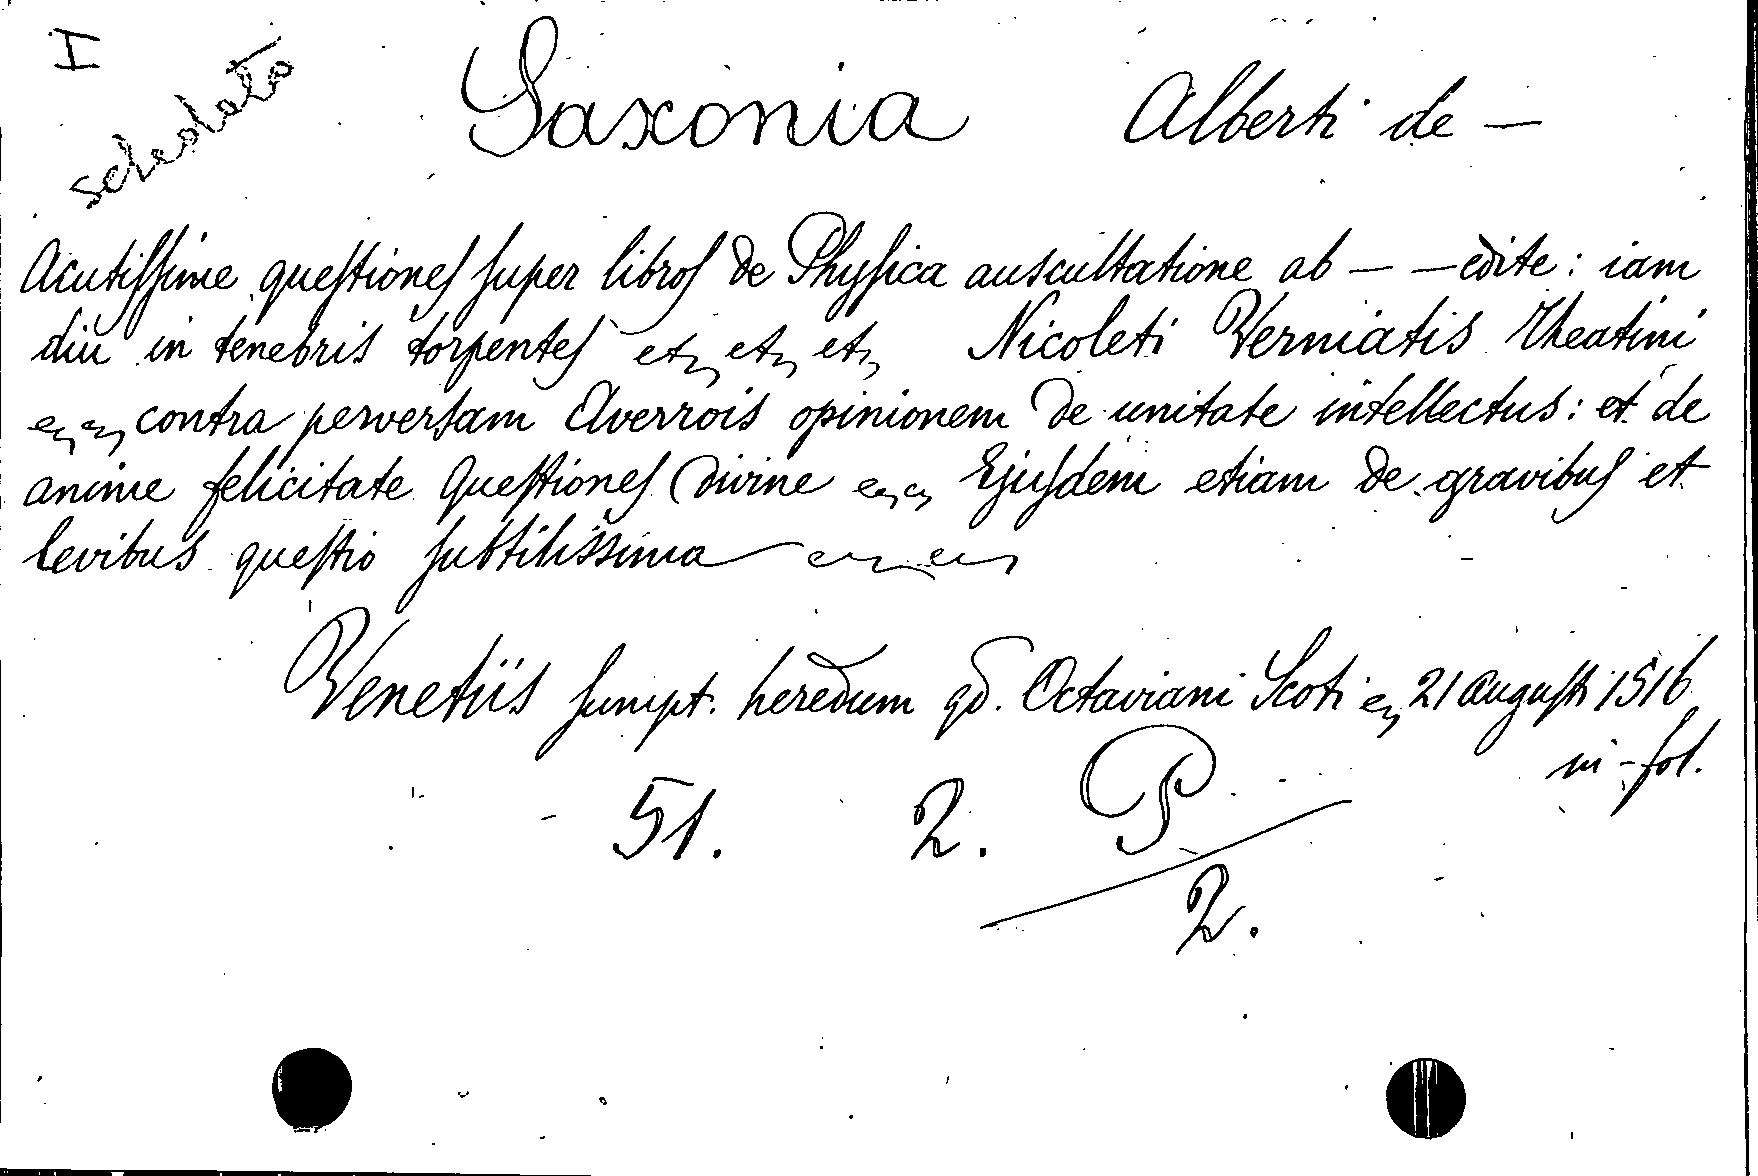 I
schedato
Saxonia Alberti de —
Acutiſſime queſtioneſ ſuper libroſ de Phyſica auscultatione ab — — edite: iam
diu in tenebris torpenteſ etc, etc, etc, Nicoleti Verniatis Theatini
etc, etc, contra perverſam Averrois opinionem de unitate intellectus: et de
anime felicitate Queſtioneſ divine etc, etc, Ejuſdem etiam de gravibuſ et
levibus queſtio ſubtilissima etc, etc,
Venetiis ſumpt. heredum qd. Octaviani Scoti etc, 21 Auguſti 1516
in-fol.
51. 2. P
2.